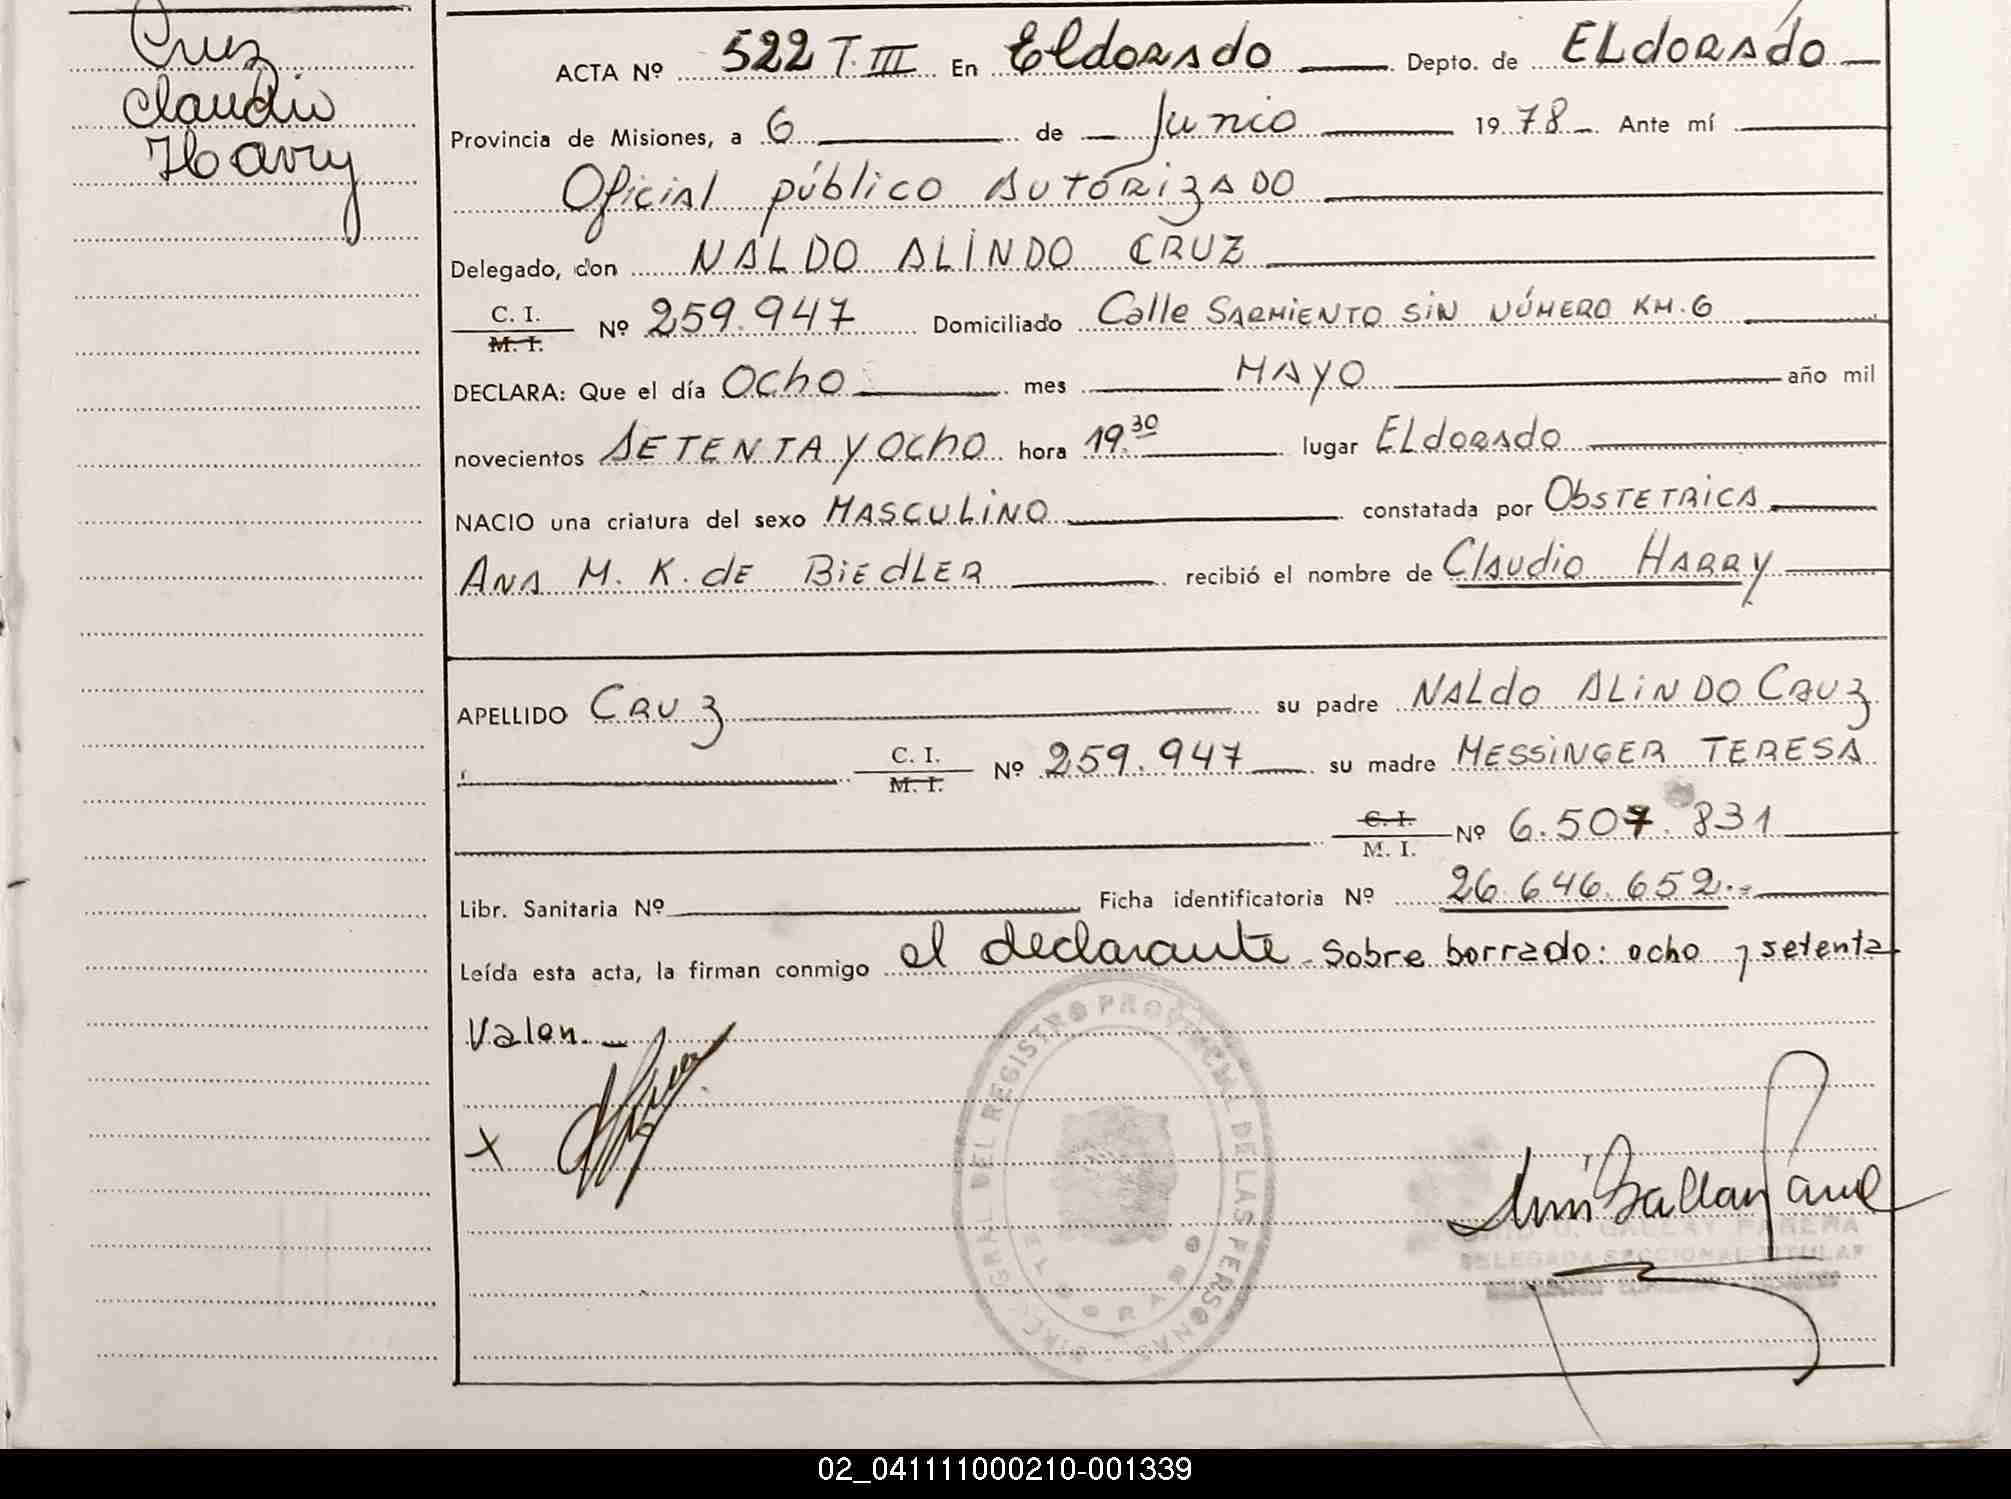 Cruz
Claudio
Harry
ACTA Nº 522 T. III En Eldorado Depto. de ELdorado
Provincia de Misiones, a 6 de Junio 1978 Ante mí
Oficial público Autorizado
Delegado, don NALDO ALINDO CRUZ
C. I.
M. I. Nº 259.947 Domiciliado Calle SARMIENTO SIN NÚMERO KM. 6
DECLARA: Que el día Ocho mes MAYO año mil
novecientos SETENTA Y OCHO hora 19.30 lugar ELdorado
NACIO una criatura del sexo MASCULINO constatada por ObSTETRICA
ANA M. K. dE BIEDLER recibió el nombre de Claudio HARRY
APELLIDO CRUZ su padre NALdo ALINDO CRUZ
C. I.
M. I. Nº 259.947 su madre MESSINGER TERESA
C. I.
M. I. Nº 6.507.831
Libr. Sanitaria Nº Ficha identificatoria Nº 26.646.652.-
Leída esta acta, la firman conmigo el declarante. Sobre borrado: ocho y setenta
Valen.
X
DEL REGISTRO PROVINCIAL DE LAS PERSONAS
ELDORADO
GALLAY PARERA
DELEGADA SECCIONAL TITULAR
02_041111000210-001339